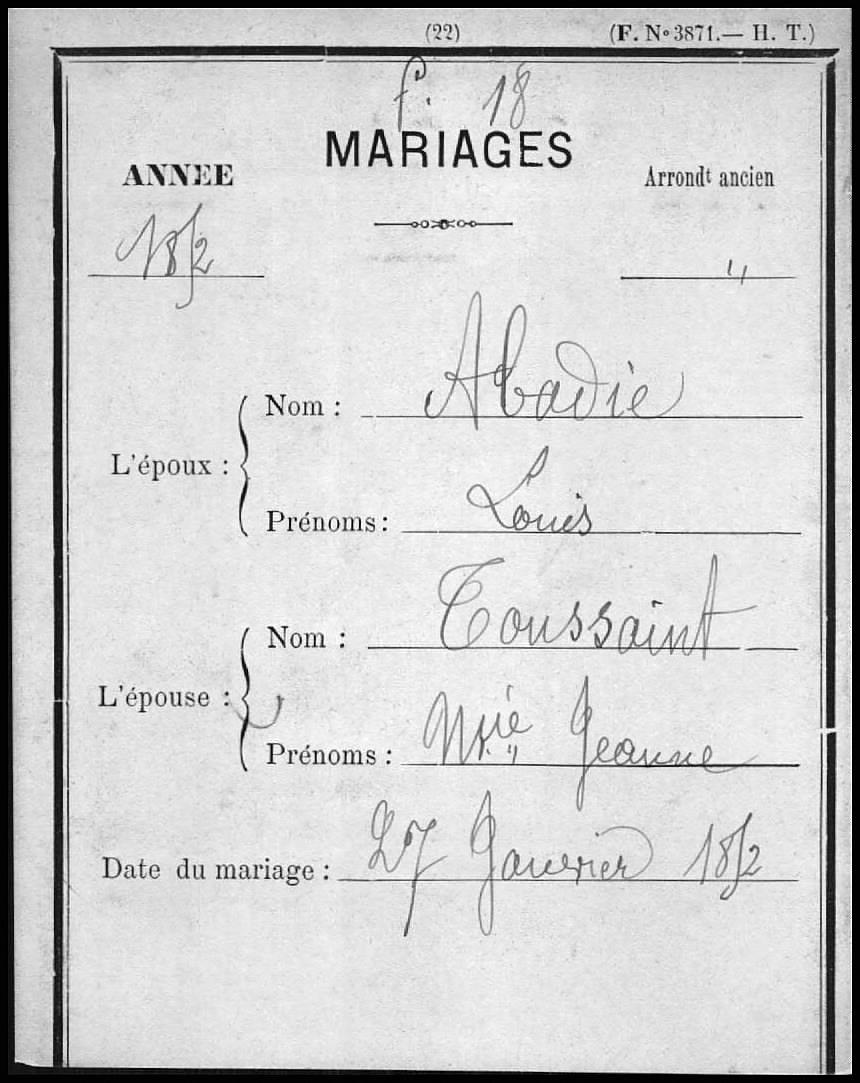 (22) (F. Nº 3871.— H. T.)
f. 18
MARIAGES
ANNEE Arrondt ancien
1852 "
L'époux :
Nom : Abadie
Prénoms : Louis
L'épouse :
Nom : Toussaint
Prénoms : Mie Jeanne
Date du mariage : 27 Janvier 1852